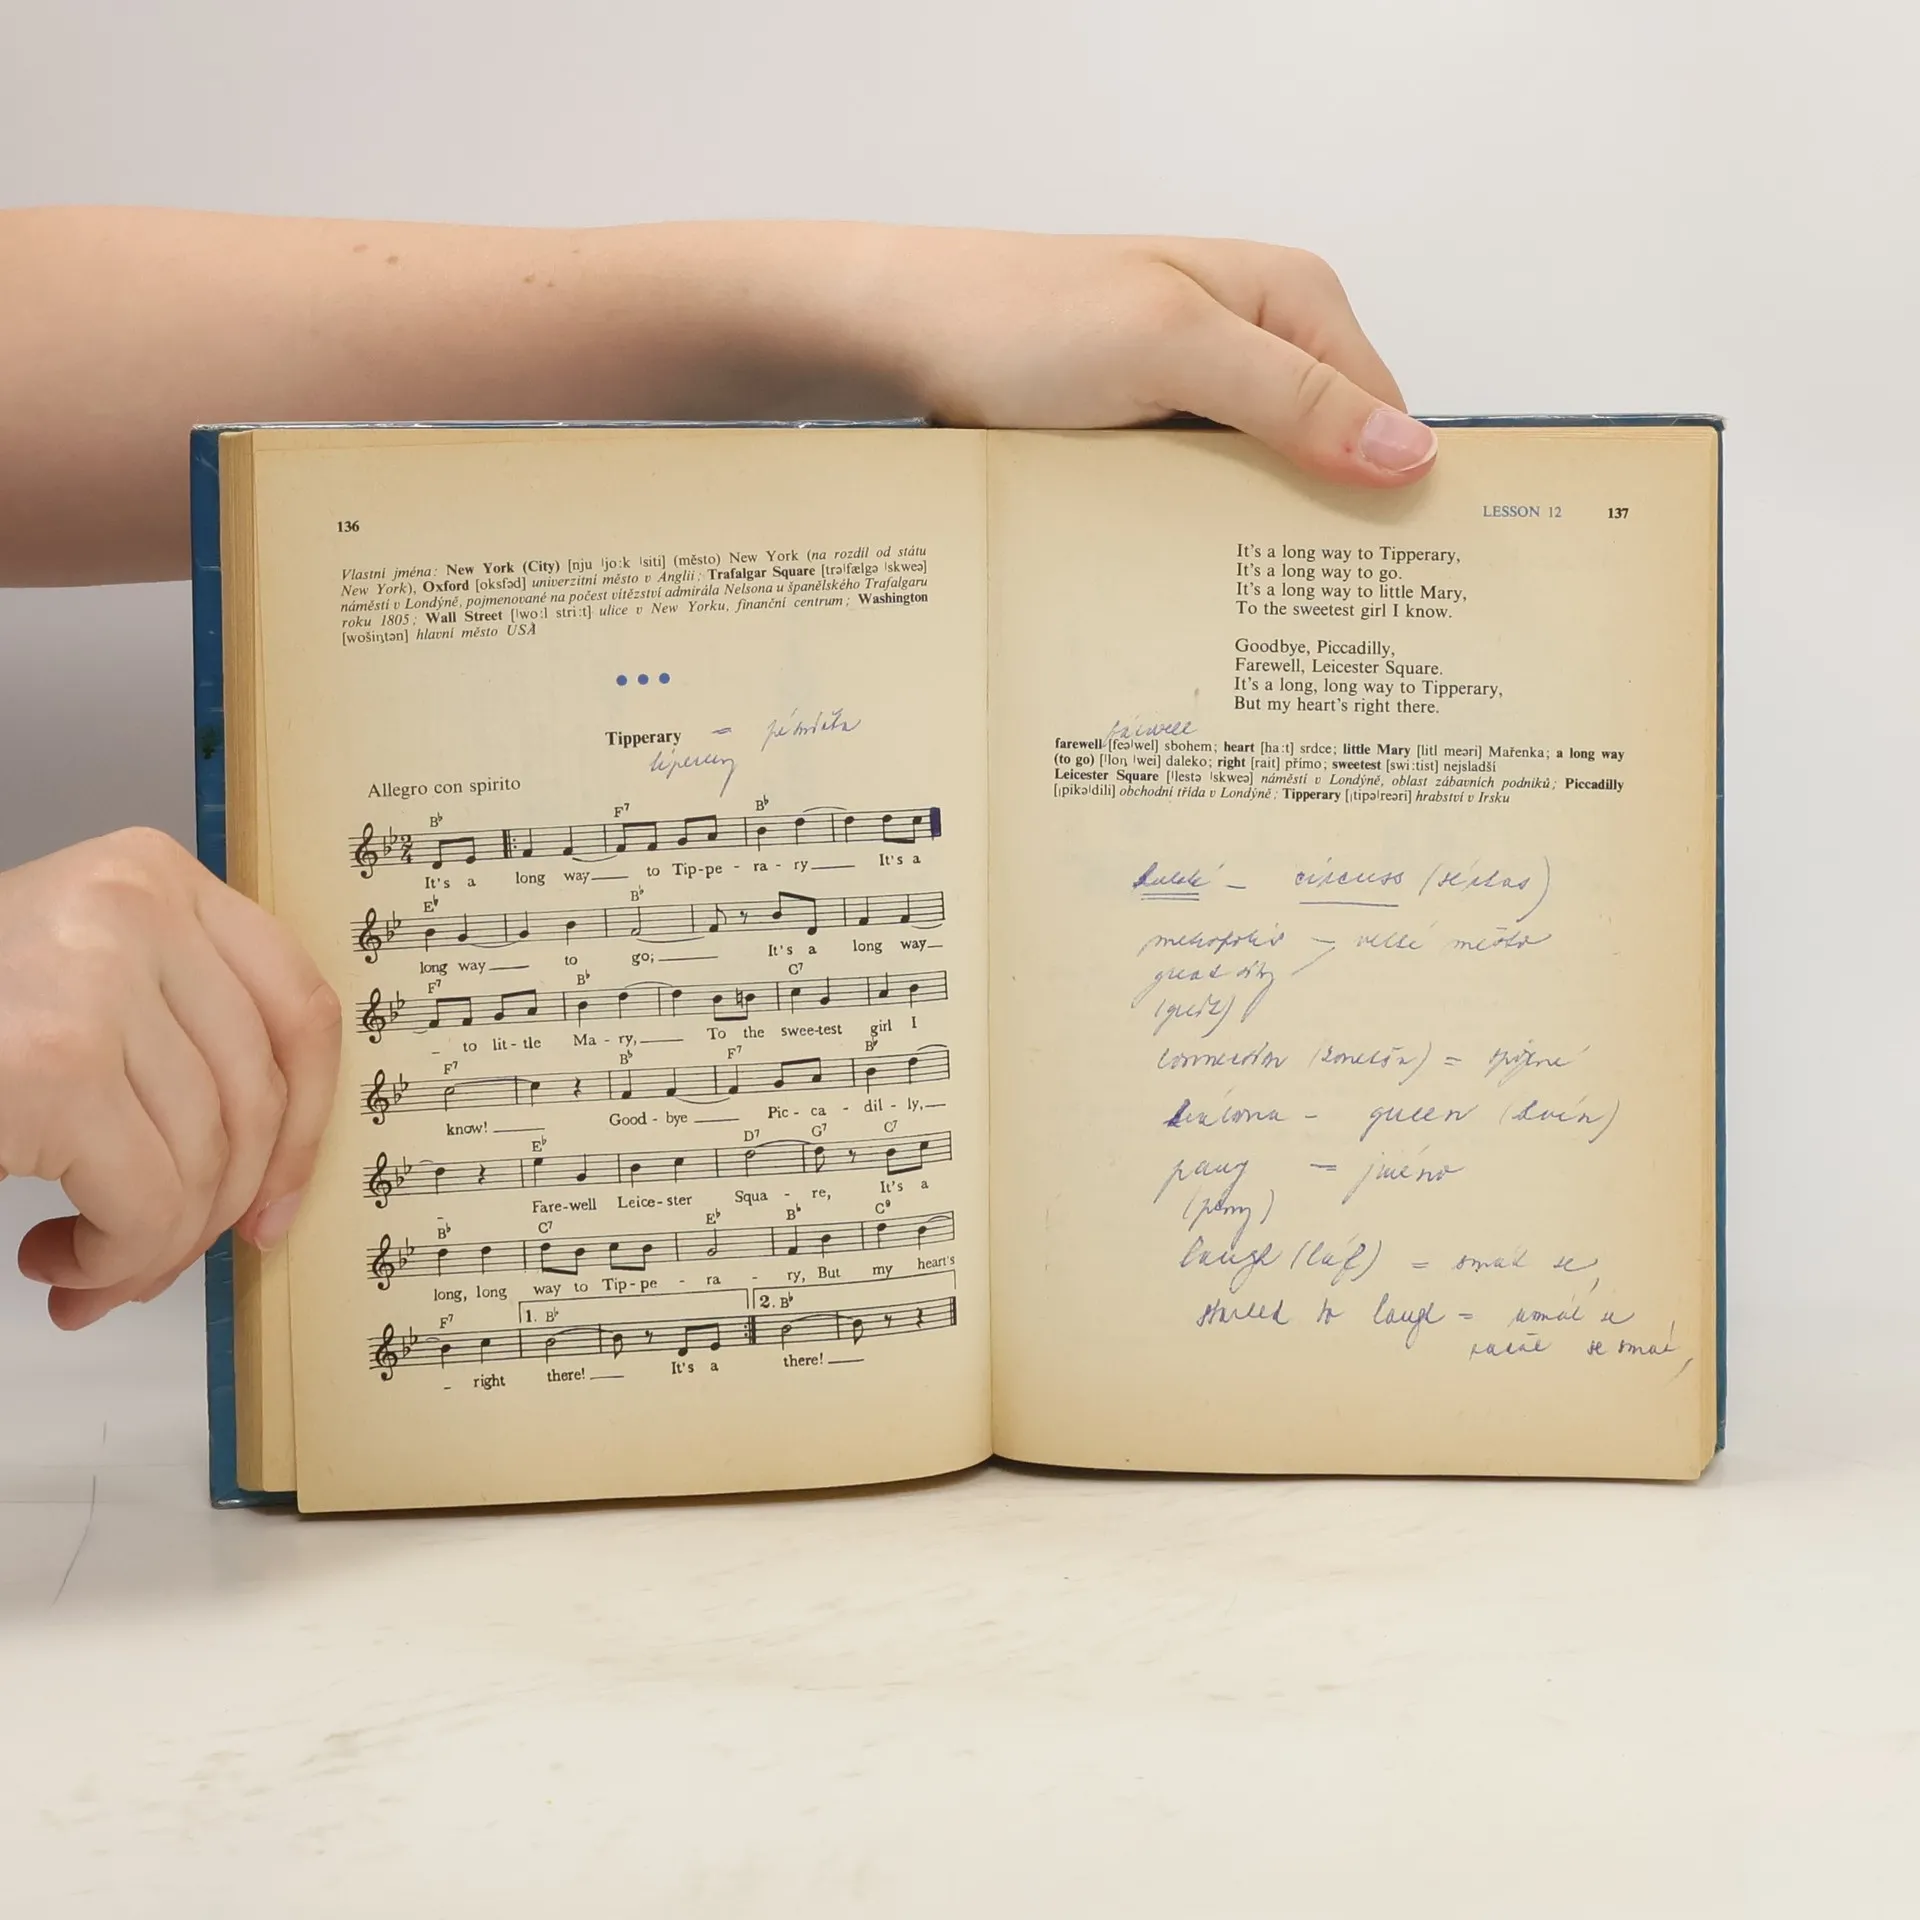 136
Vlastní jména: New York (City) [nju ˈjo:k ˈsiti] (město) New York (na rozdíl od státu
New York), Oxford [oksfəd] univerzitní město v Anglii; Trafalgar Square [trəˈfælgə ˈskweə]
náměstí v Londýně, pojmenované na počest vítězství admirála Nelsona u španělského Trafalgaru
roku 1805; Wall Street [ˈwo:l stri:t] ulice v New Yorku, finanční centrum; Washington
[wošiŋtən] hlavní město USA
Tipperary =
Allegro con spirito
B♭ F7 B♭
2 4
It's a long way to Tip-pe - ra - ry It's a
E♭ B♭
long way to go; It's a long way
F7 B♭ C7
to lit - tle Ma - ry, To the swee-test girl I
F7 B♭ F7 B♭
know! Good - bye Pic - ca - dil - ly,
E♭ D7 G7 C7
Fare-well Leice-ster Squa - re, It's a
B♭ C7 E♭ B♭ C9
long, long way to Tip-pe - ra - ry, But my heart's
F7 1. B♭ 2. B♭
right there! It's a there!
LESSON 12 137
It's a long way to Tipperary,
It's a long way to go.
It's a long way to little Mary,
To the sweetest girl I know.
Goodbye, Piccadilly,
Farewell, Leicester Square.
It's a long, long way to Tipperary,
But my heart's right there.
farewell [feəˈwel] sbohem; heart [ha:t] srdce; little Mary [litl meəri] Mařenka; a long way
(to go) [ˈloŋ ˈwei] daleko; right [rait] přímo; sweetest [swi:tist] nejsladší
Leicester Square [ˈlestə ˈskweə] náměstí v Londýně, oblast zábavních podniků; Piccadilly
[ˌpikəˈdili] obchodní třída v Londýně; Tipperary [ˌtipəˈreəri] hrabství v Irsku
– circuss (sérkas)
metropolis – velké město
great city
connection =
královna – queen (kvín)
– jméno
laugh (láf) = smát se,
started to laugh =
začal se smát,